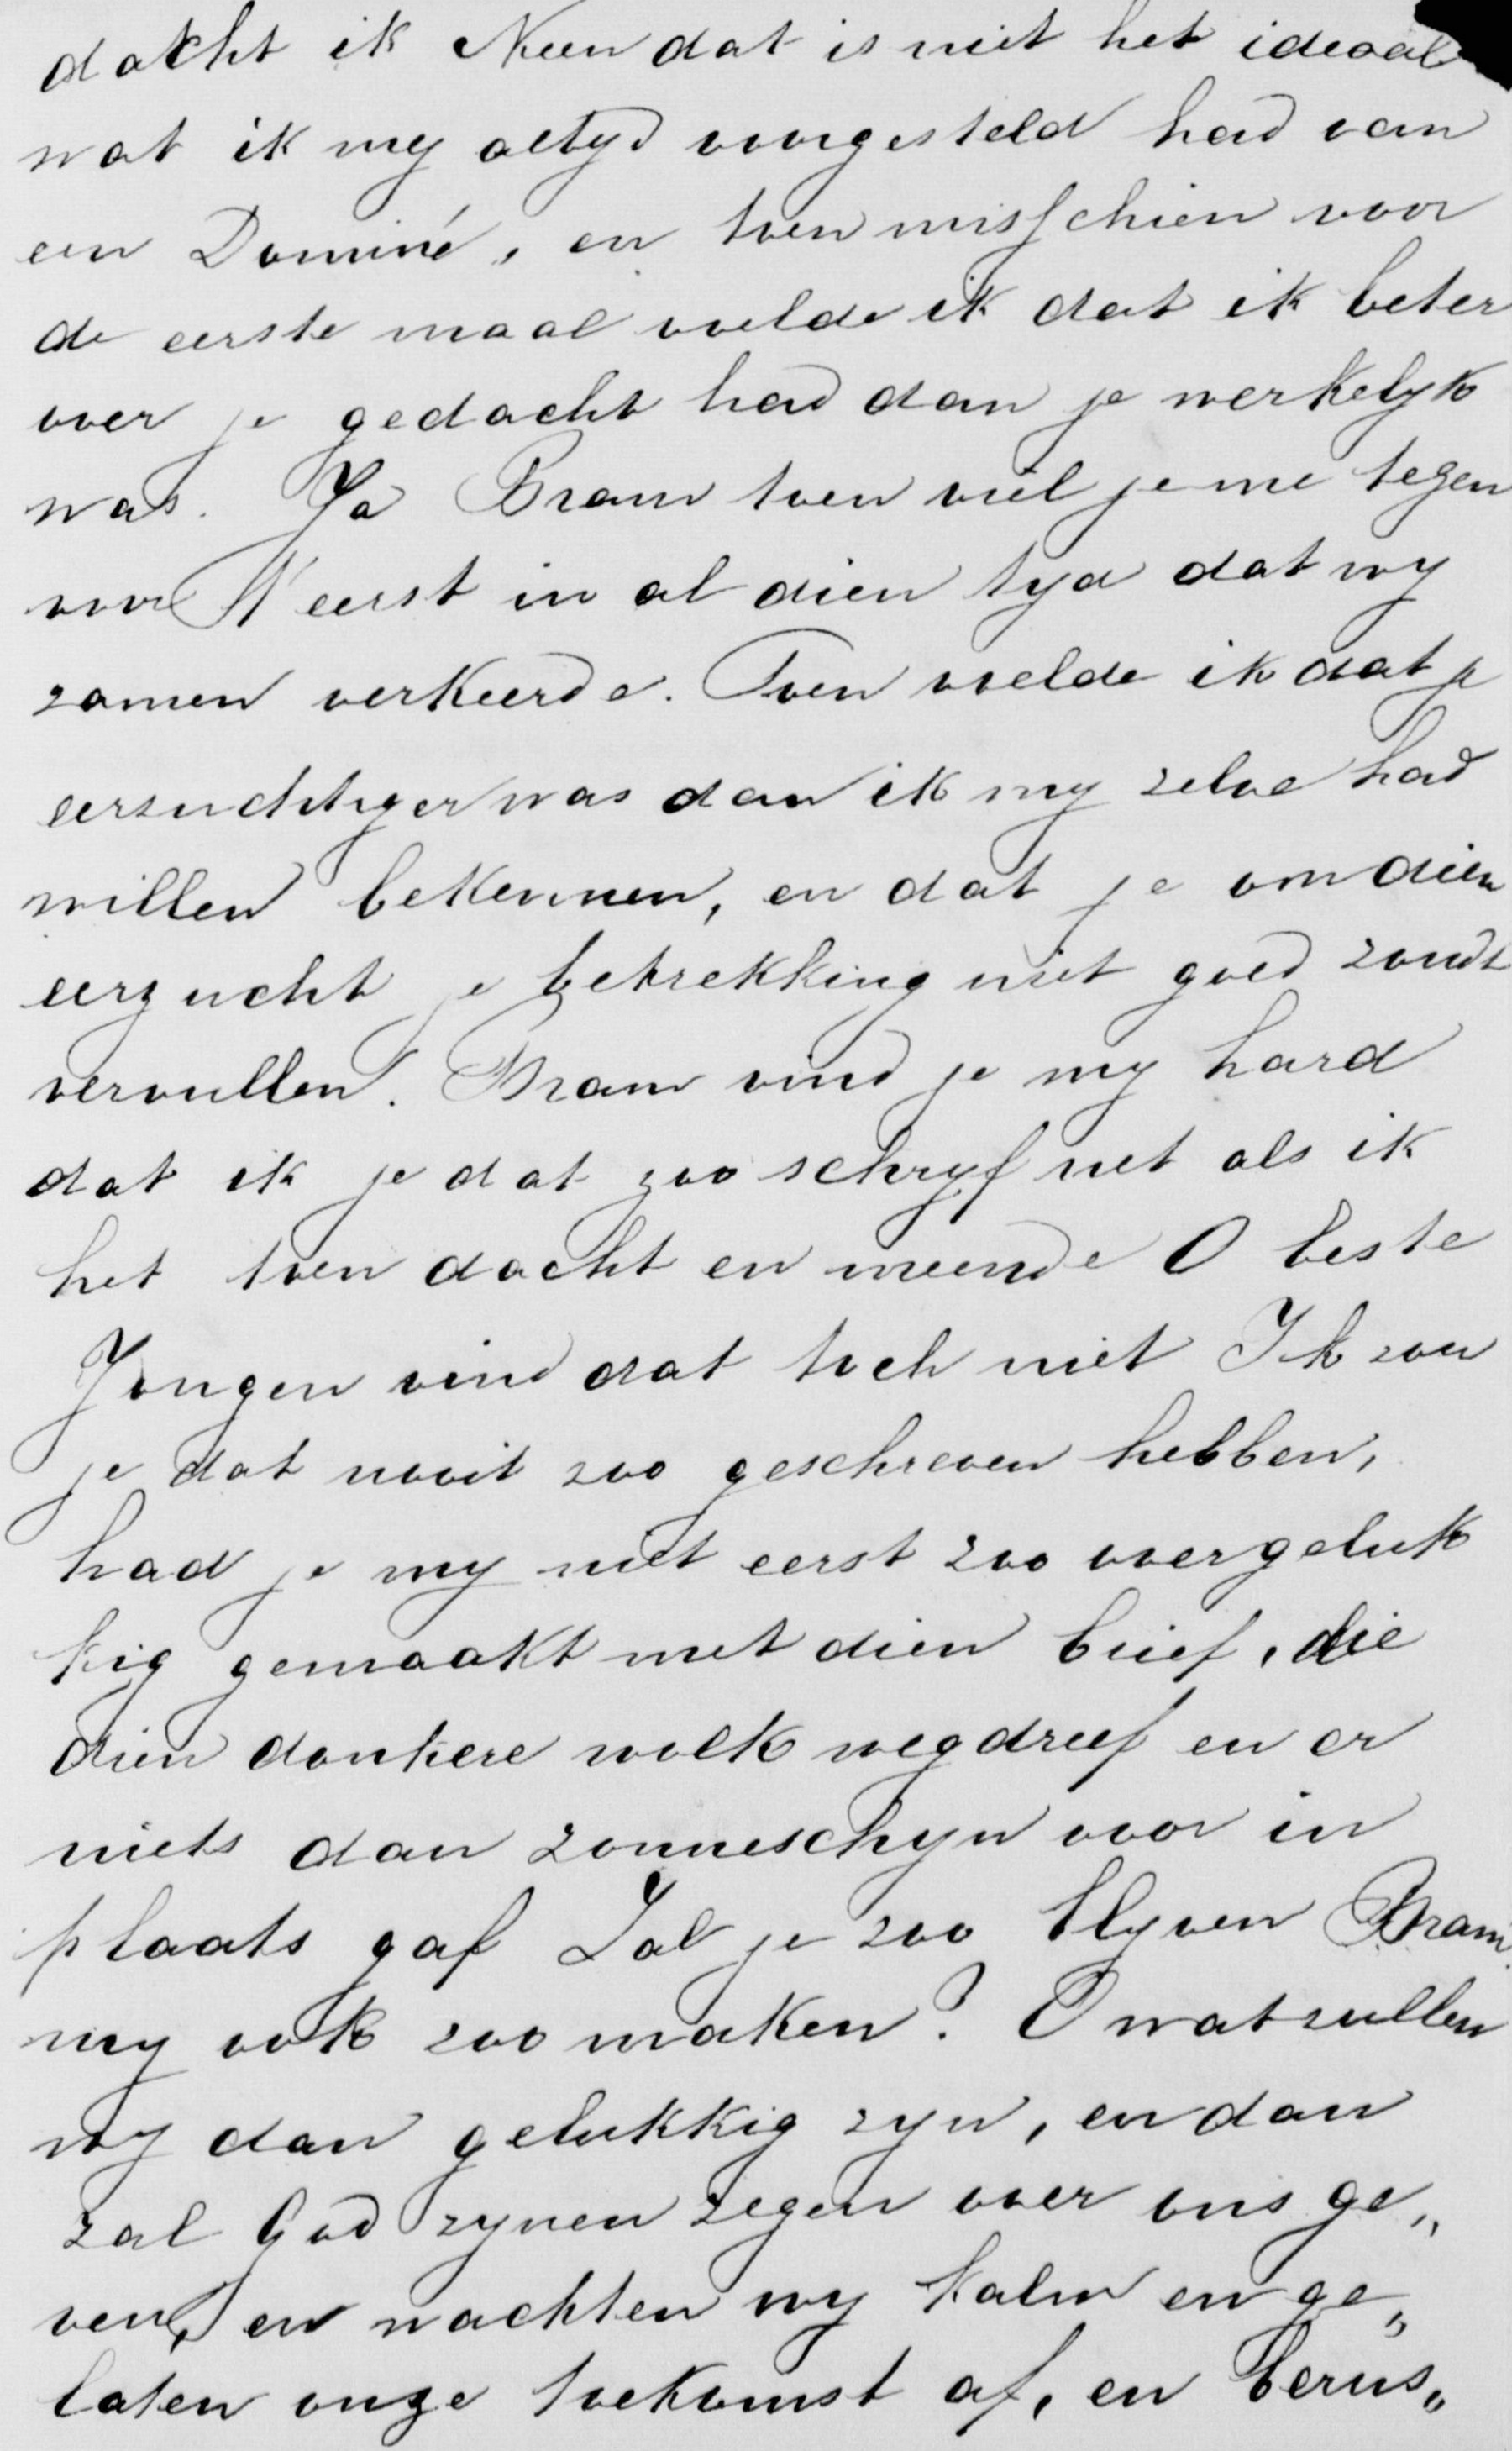 dacht ik Neen dat is niet het ideaal
wat ik my altyd voorgesteld had van
een Dominé, en toen misschien voor
de eerste maal voelde ik dat ik beter
over je gedacht had dan je werkelyk
was. Ja Bram toen viel je me tegen
voor 't eerst in al dien tyd dat wy
zamen verkeerde. Toen voelde ik dat je
eerzuchtiger was dan ik my zelve had
willen bekennen, en dat je om dien
eerzucht je betrekking niet goed zoudt
vervullen. Bram vind je my hard
dat ik je dat zoo schryf net als ik
het toen dacht en meende O beste
Jongen vind dat toch niet Ik zou
je dat nooit zoo geschreven hebben,
had je my niet eerst zoo overgeluk
kig gemaakt met dien brief, die
dien donkere wolk wegdreef en er
niets dan zonneschyn voor in
plaats gaf Zal je zoo blyven Bram
my ook zoo maken? O wat zullen
wy dan gelukkig zyn, en dan
zal God zynen zegen over ons ge„
ven, en wachten wy kalm en ge„
laten onze toekomst af, en berus„